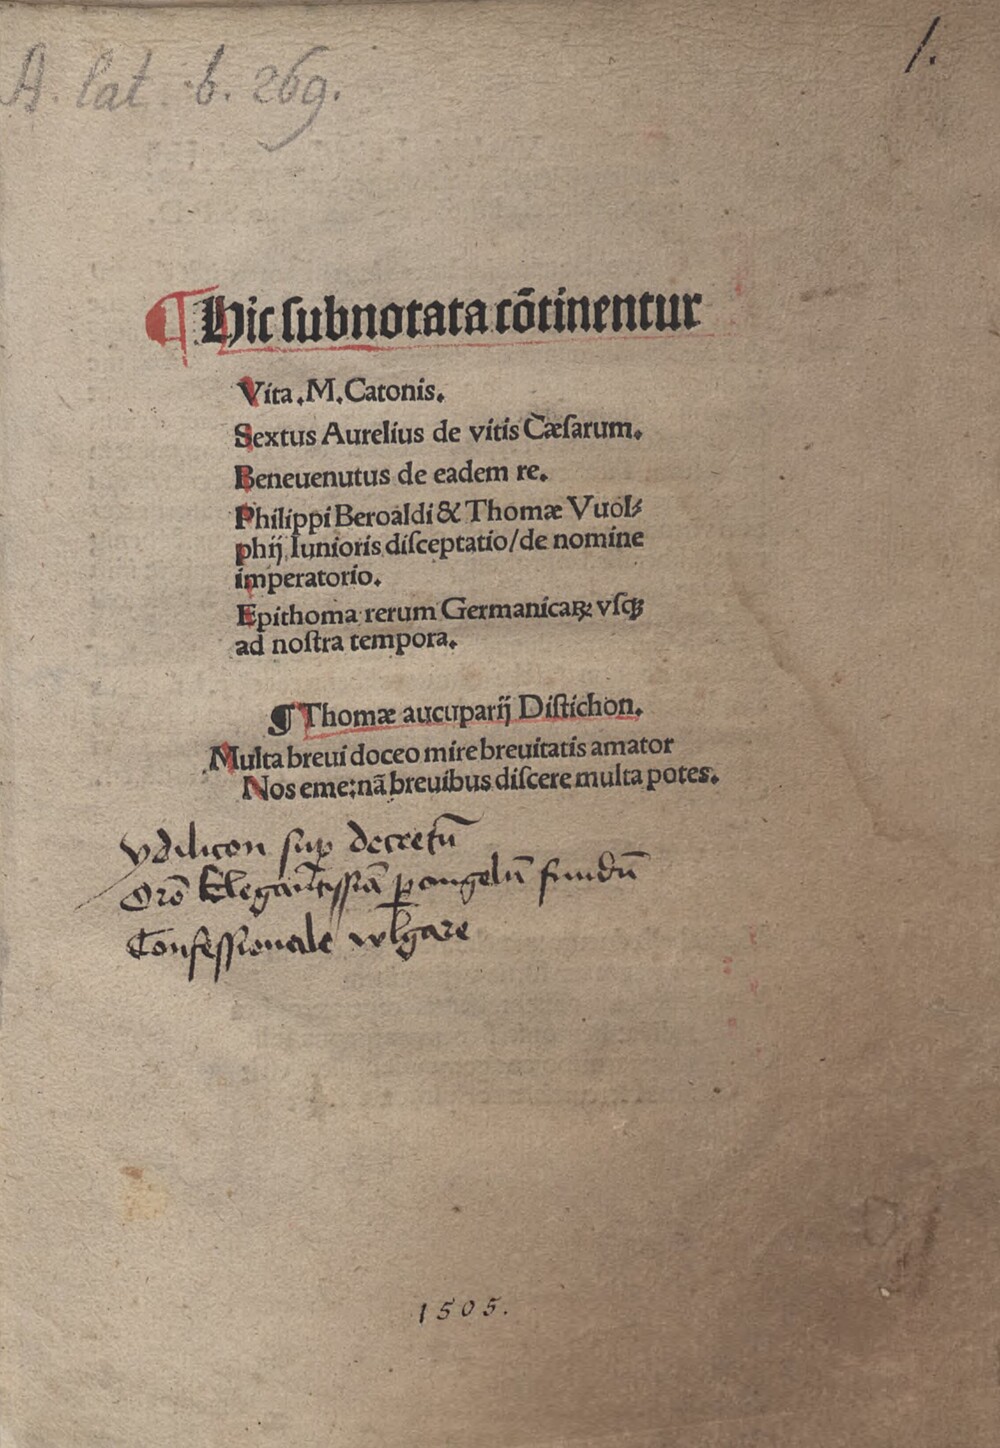 A. lat. b. 269.
1.
¶ Hic ſubnotata cōtinentur
Vita .M. Catonis.
Sextus Aurelius de vitis Cæſarum.
Beneuenutus de eadem re.
Philippi Beroaldi & Thomæ Vuol⸗
phij Iunioris diſceptatio/de nomine
imperatorio.
Epithoma rerum Germanicaꝝ vſqꝫ
ad noſtra tempora.
¶ Thomæ aucuparij Diſtichon.
Multa breui doceo mire breuitatis amator
Nos eme: nā breuibus diſcere multa potes.
ſuꝑ decretū
Orō ꝑ angelū fundū
Confeſſionale vulgare
1505.